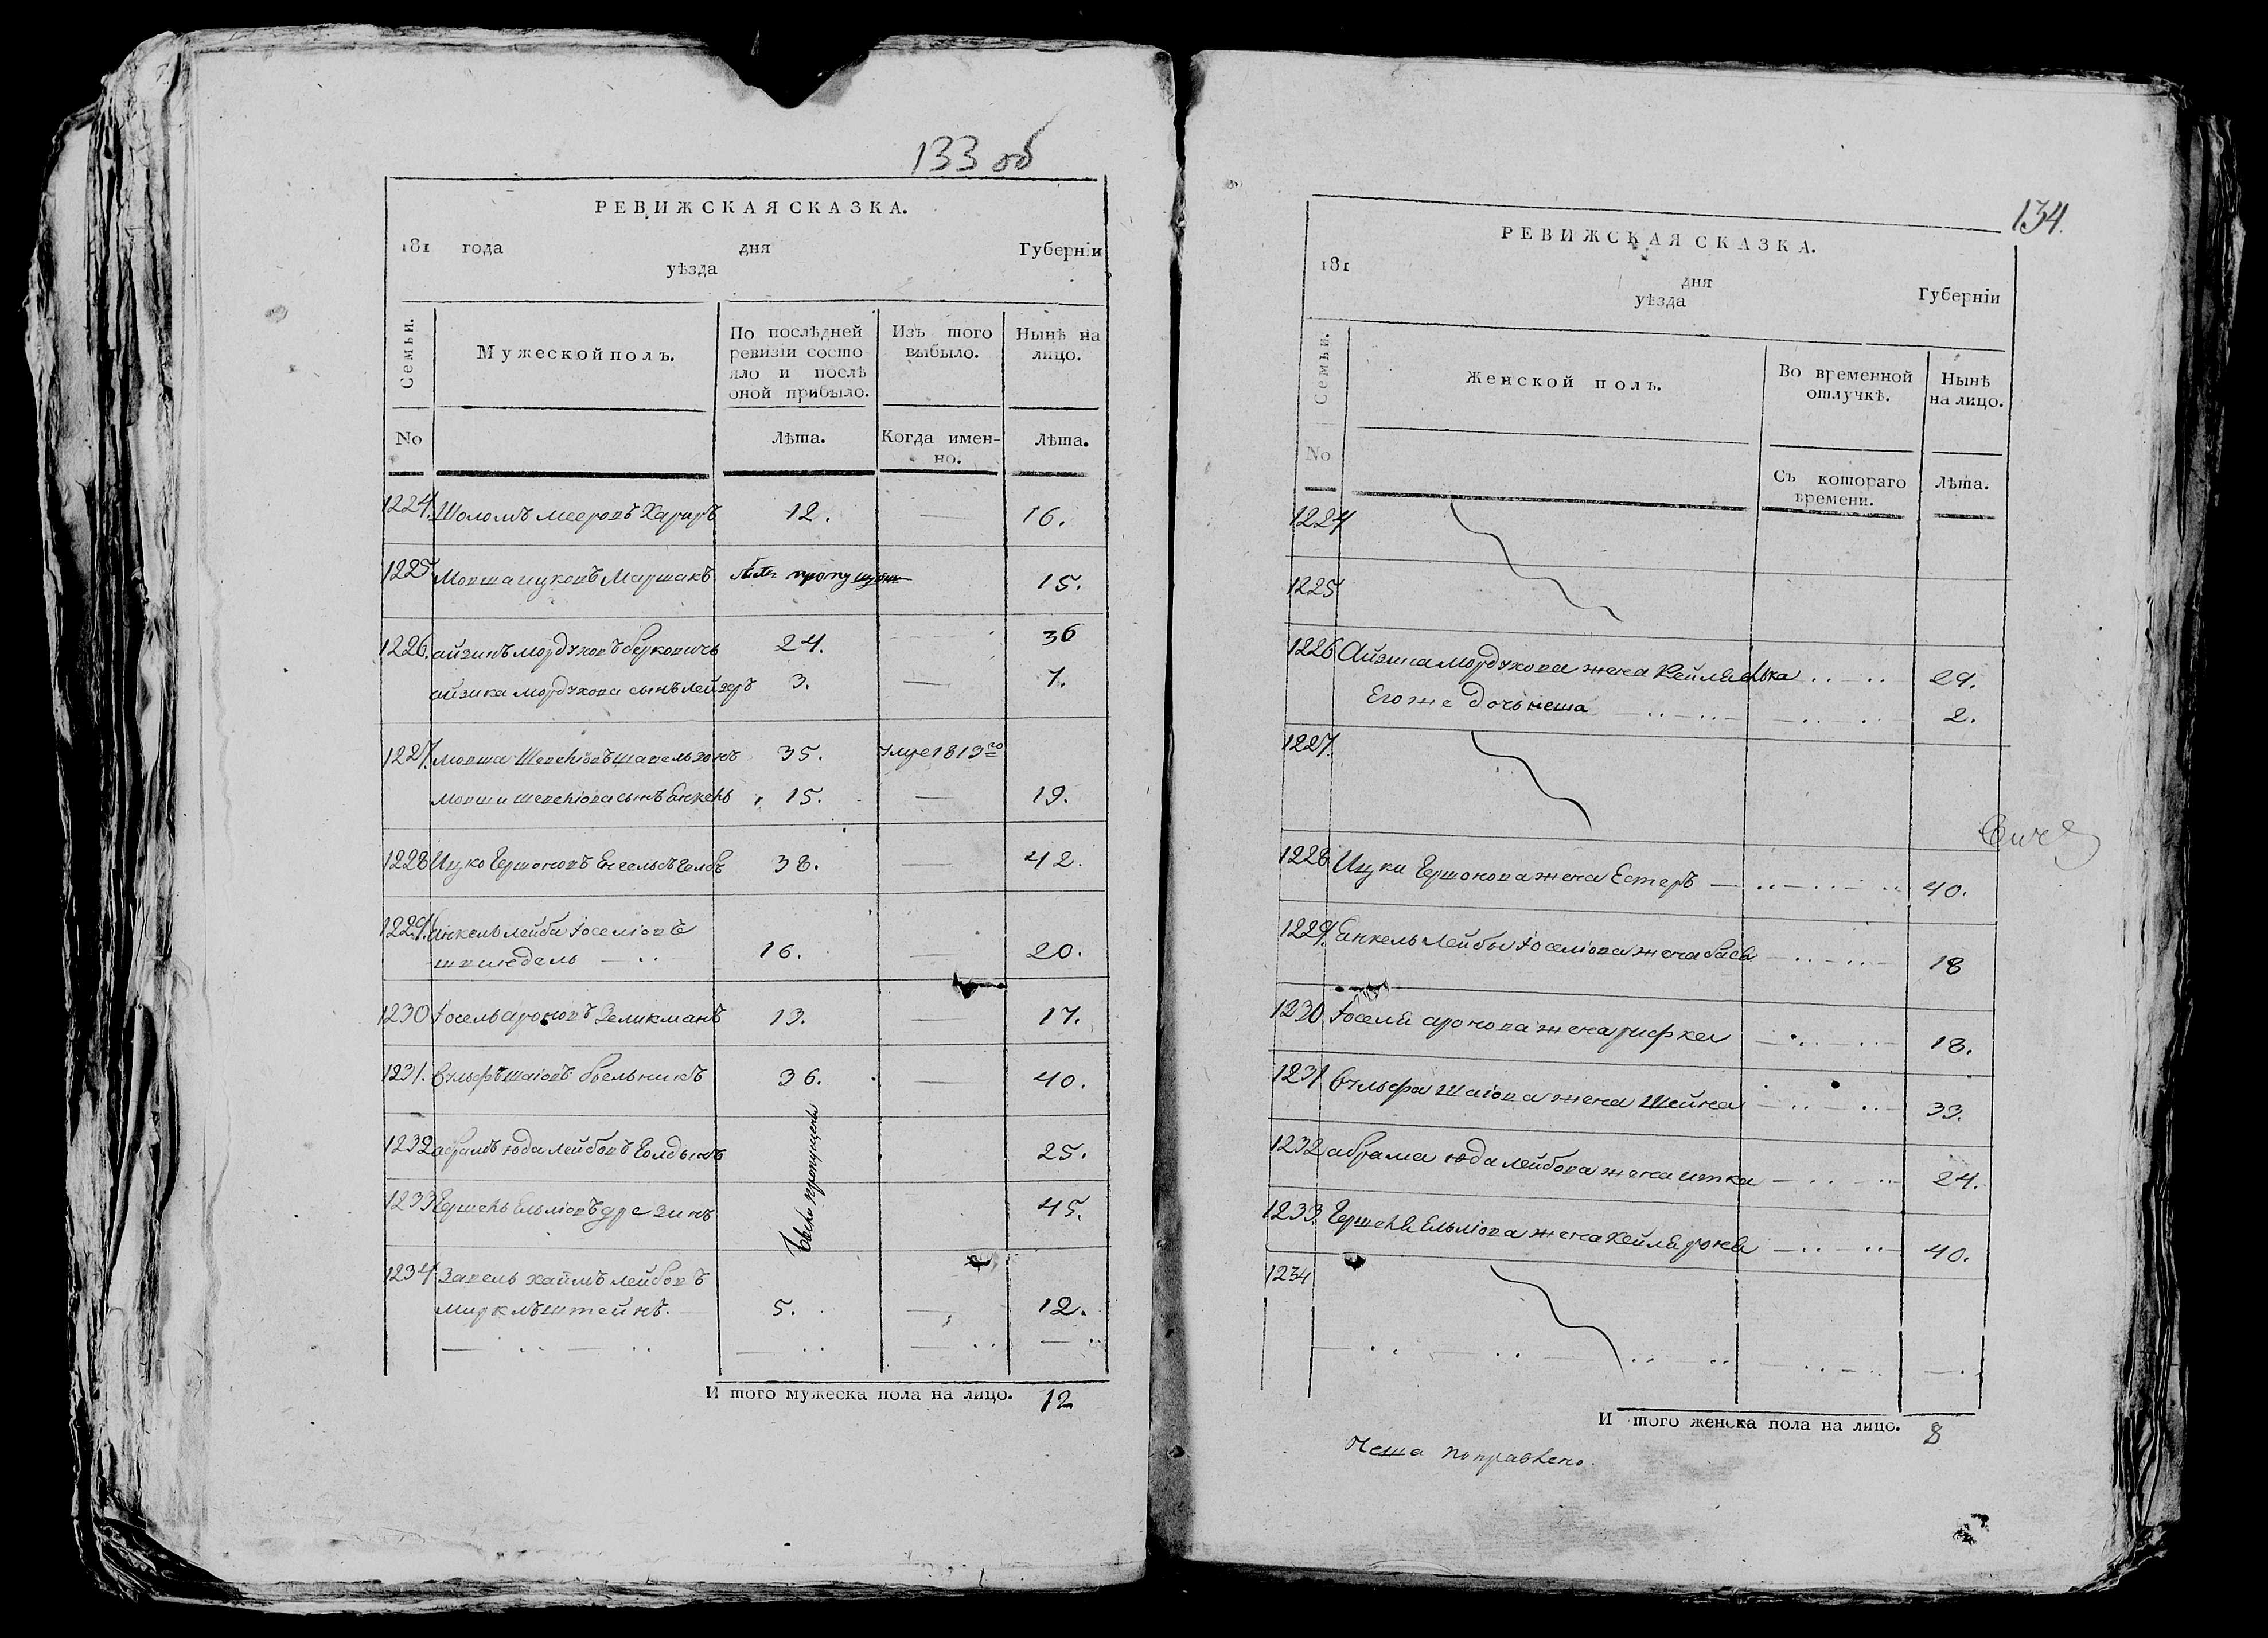 133 об
РЕВИЖСКАЯ СКАЗКА.
181 года дня Губерніи
уѣзда
Семьи. Мужеской полъ. По послѣдней ревизіи состояло и послѣ оной прибыло. Изъ того выбыло. Нынѣ на лицо.
No Лѣта. Когда именно. Лѣта.
1224. Шоломъ мееровъ 12. — 16.
1225 Мовша ицковъ Маршакъ 15.
1226. айзикъ мордуховъ берковичь 24. 36
айзика мордухова сынъ лейзеръ 3. — 7.
1227. мовша 35. 1813го
мовши сынъ 15. — 19.
1228 Ицко Гершоновъ 38. — 42.
1229. Янкель лейба Іоселіовъ
шпиндель — 16. — 20.
1230 Іосель ароновъ Зеликманъ 13. — 17.
1231. Вульфъ шаіовъ 36. — 40.
1232 абрамъ юда лейбовъ Голдинъ 25.
пропущены
1233 45.
1234 Завель хаимъ лейбовъ
мирклъштейнъ. 5. — 12.
И того мужеска пола на лицо. 12
134.
РЕВИЖСКАЯ СКАЗКА.
181 дня Губерніи
уѣзда
Семьи. Женской полъ. Во временной отлучкѣ. Нынѣ на лицо.
No Съ котораго времени. Лѣта.
1224
1225
1226 Айзика мордухова жена 29.
Его же дочь неша 2.
1227.
1228 Ицки Гершонова жена Естеръ — 40.
1229. Янкель Лейбы Іоселіова жена бася — 18
1230 Іоселя аронова жена рифка — 18.
1231 Вульфа шаіова жена шейна — 33.
1232 абрама юда лейбова жена итка — 24.
1233. жена — 40.
1234
И того женска пола на лицо. 8
Неша поправлено.